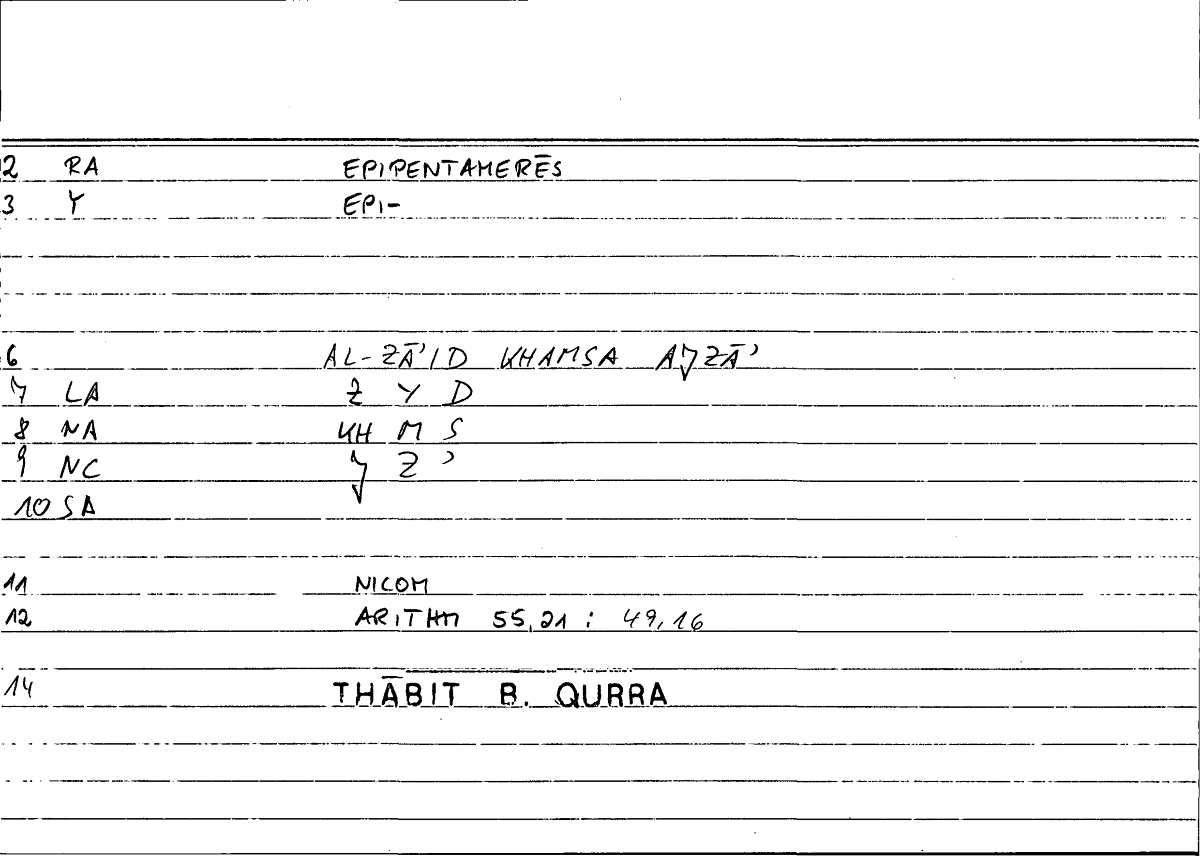 2 RA EPIPENTAMERĒS
3 Y EPI-
6 AL-ZĀʾID KHAMSA AJZĀʾ
7 LA Z Y D
8 NA KH M S
9 NC J Z ʾ
10 SA
11 NICOM
12 ARITHM 55,21 : 49,16
14 THĀBIT B. QURRA